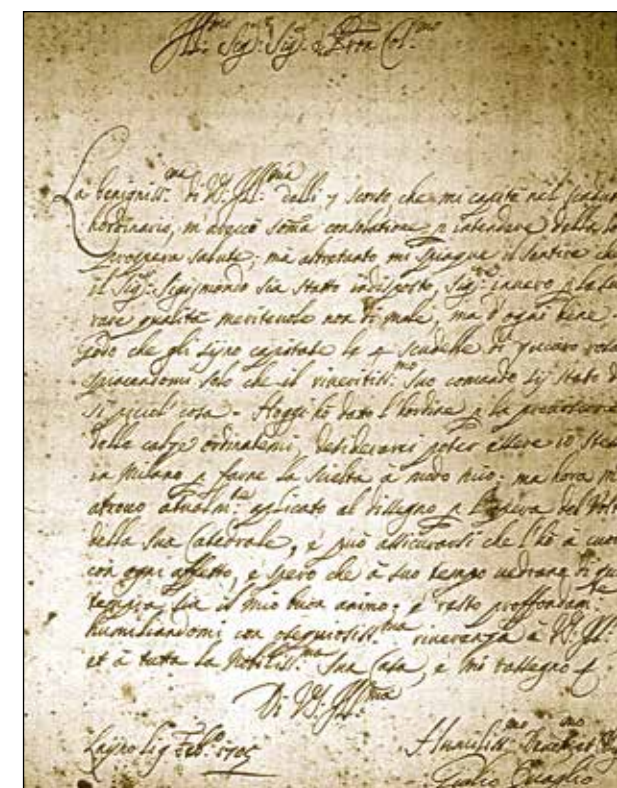 Ill:mo Sig:r Sig:r e Pron Col:mo
La benigniss:ma di VS. Ill:ma delli 7 scorso che mi capitò nel
hordinario, m'arecò soma consolatione p intendere della
prospera salute; ma altretanto mi spiaque il sentire che
il Sig:r Sigismondo sia statto indisposto, Sig:re invero p la
rare qualità meritevole non di male, ma d'ogni bene -
Godo che gli sijno capitate le 4 scudelle di
spiacendomi solo che il riveritiss:mo suo comando sij stato
si picciol cosa - Hoggi hò dato l'hordine p la
delle calze ordinatemi, desiderarei poter essere io
in Milano p farne la scielta à modo mio; ma hora
atrovo atualm:te aplicato al dissegno p l'opera del
della sua Catedrale, e può assicurarsi che l'hò à
con ogni affetto, e spero che à suo tempo vedrano di
tempra sia il mio buon animo; e resto proffondam:te
humiliandomi con ossequiosiss:ma riverenza à VS. Ill:
et à tutta la Nobiliss:ma sua Casa, e mi rassegno
Di VS. Ill:ma
Layno li 9 Feb:o 1705
Humiliss:mo
Giulio Quaglio